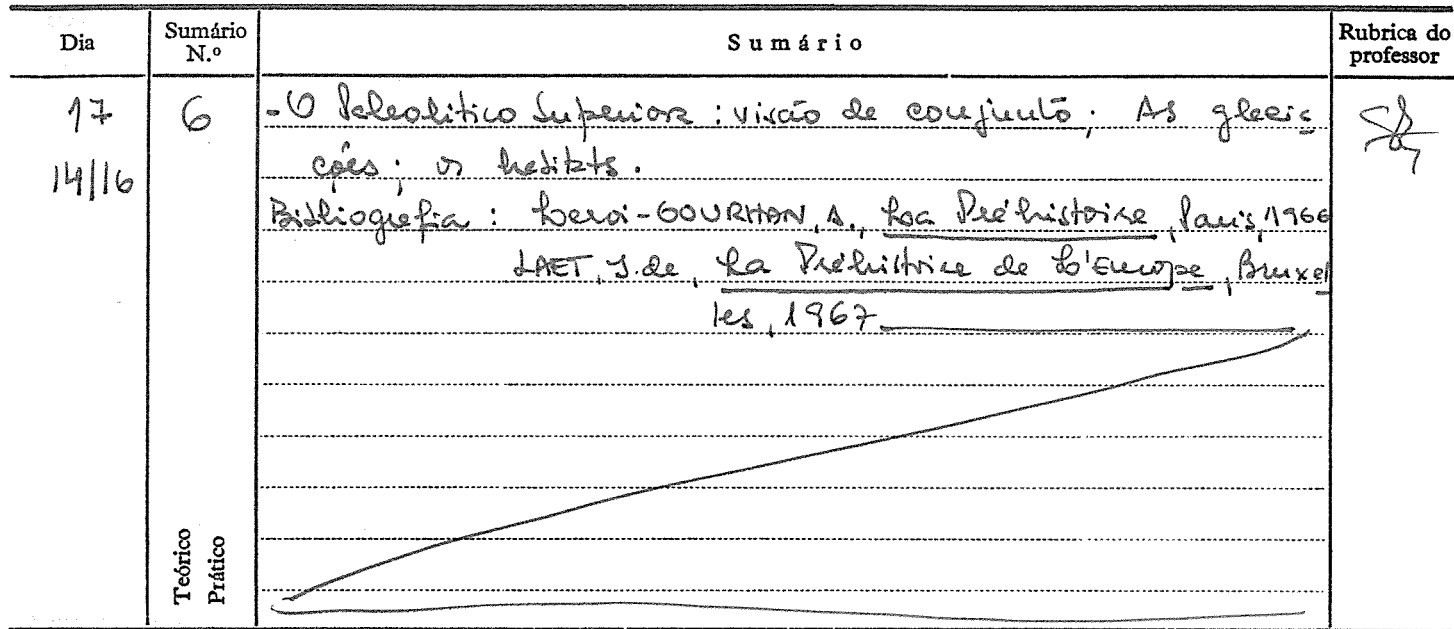 Dia
Sumário N.º
Sumário
Rubrica do professor
17
14/16
6
- O Paleolítico Superior: visão de conjunto. As glacia
ções; os habitats.
Bibliografia: Leroi-GOURHAN, A., La Préhistoire, Paris, 1966
LAET, J. de, La Préhistoire de L'Europe, Bruxel
les, 1967
Teórico
Prático